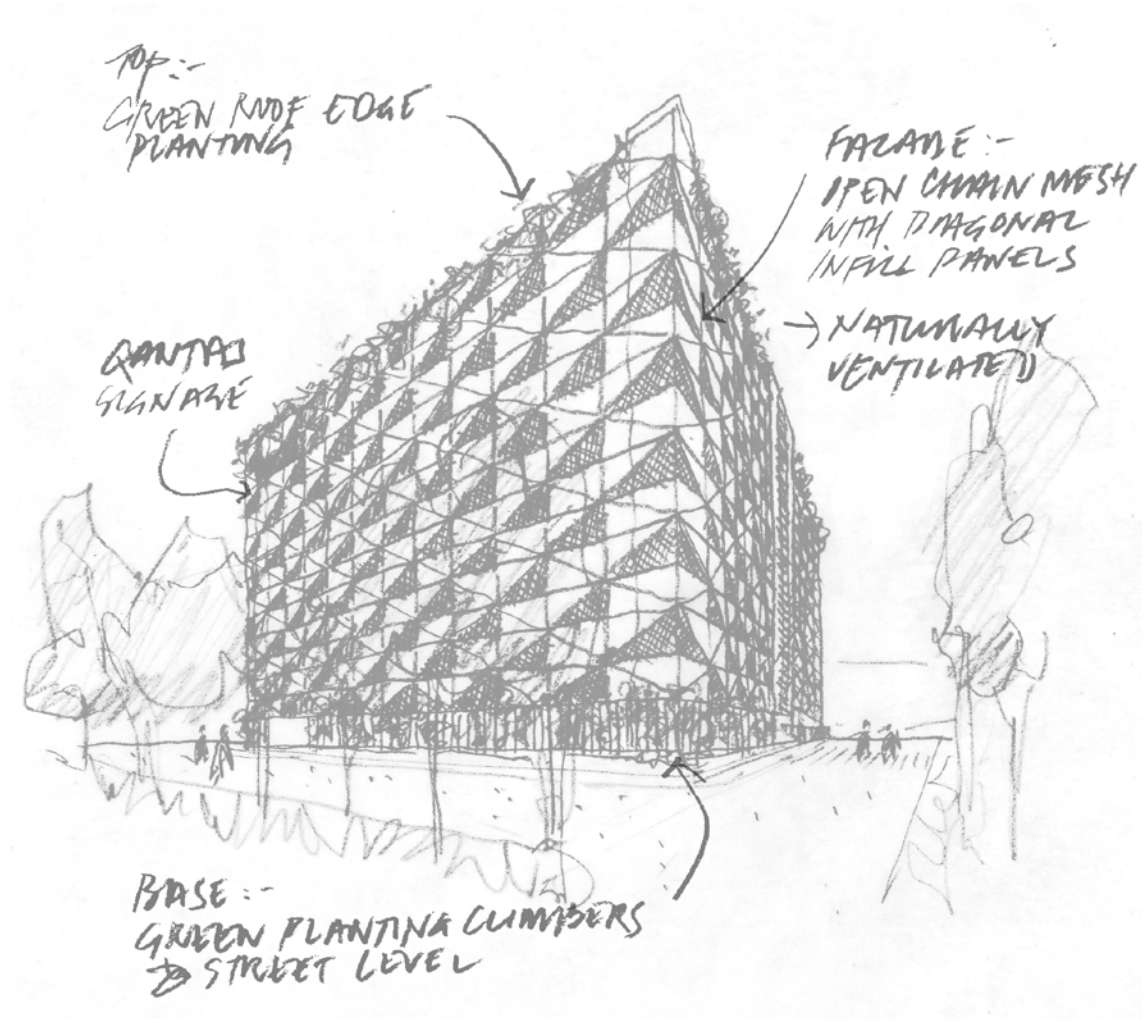 TOP:-
GREEN ROOF EDGE
PLANTING
FACADE:-
OPEN CHAIN MESH
WITH DIAGONAL
INFILL PANELS
→ NATURALLY
VENTILATED
QANTAS
SIGNAGE
BASE:-
GREEN PLANTING CLIMBERS
STREET LEVEL